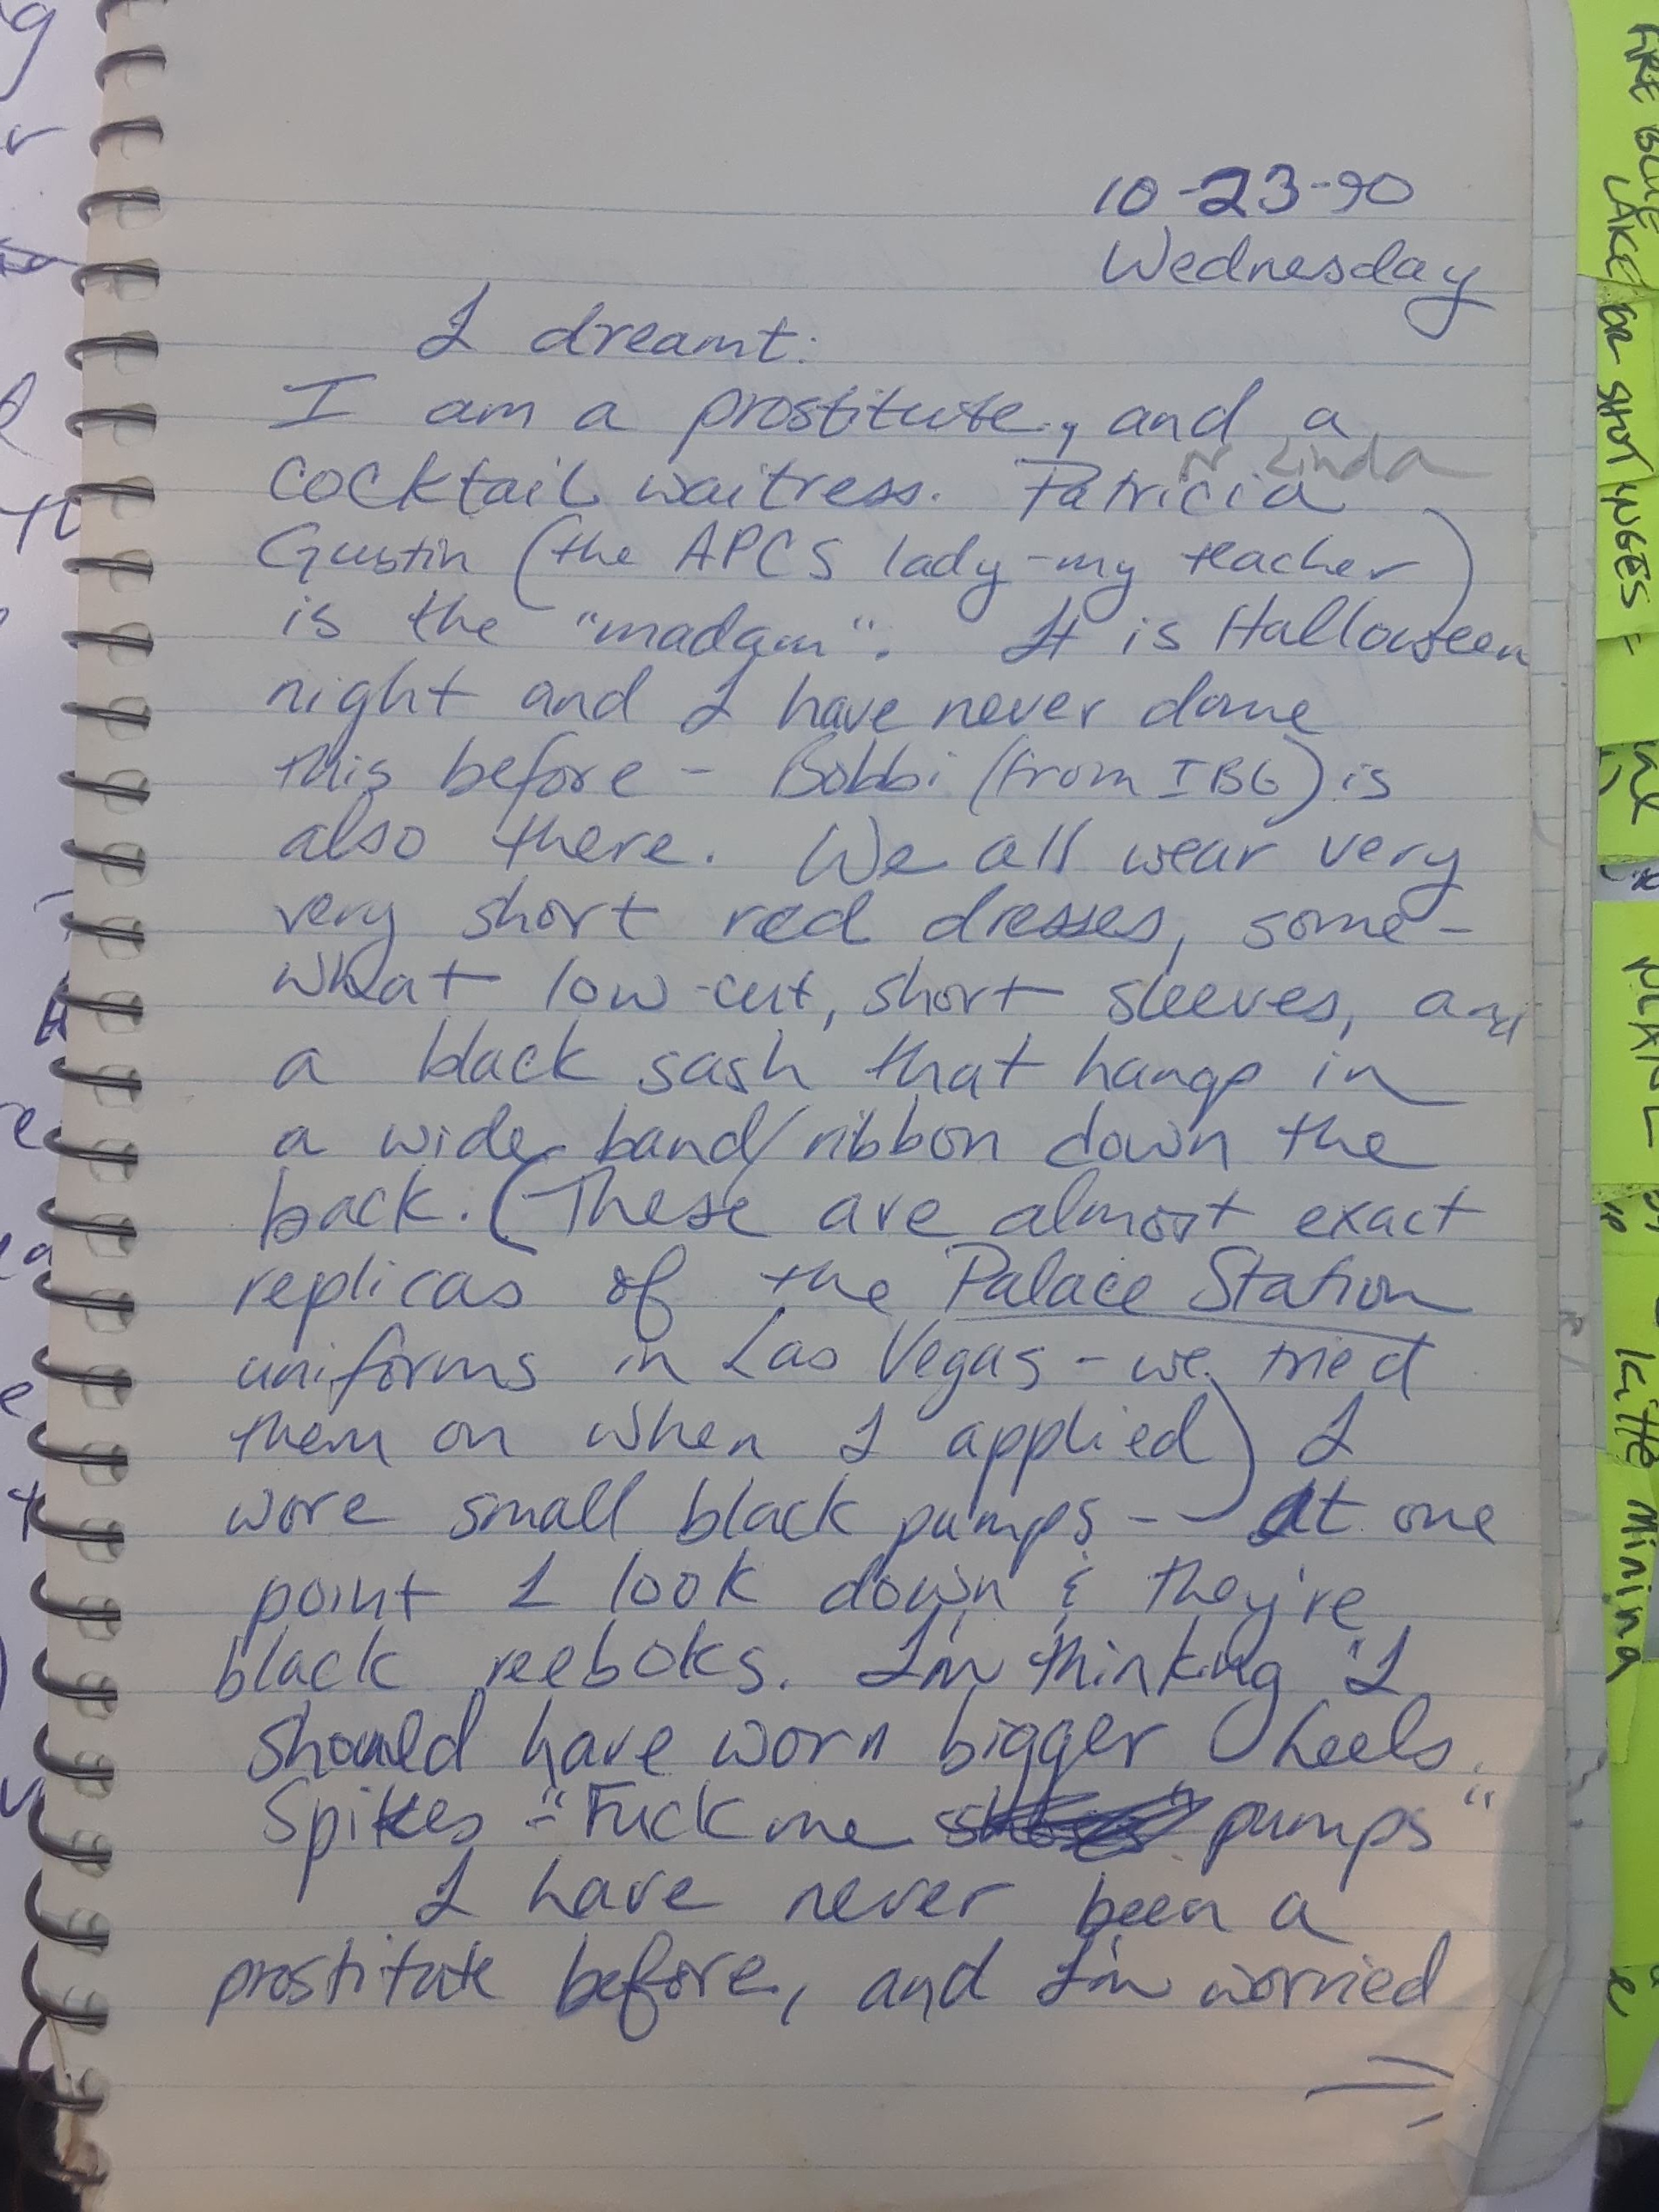 10-23-90
Wednesday
I dreamt:
I am a prostitute, and a
or Linda
cocktail waitress. Patricia
Gustin (the APCS lady-my teacher)
is the "madam". It is Halloween
night and I have never done
this before - Bobbi (from IBG) is
also there. We all wear very
very short red dresses, some-
what low-cut, short sleeves, and
a black sash that hangs in
a wide band/ribbon down the
back. (These are almost exact
replicas of the Palace Station
uniforms in Las Vegas - we tried
them on when I applied) I
wore small black pumps -- At one
point I look down & they're
black reeboks. I'm thinking "I
should have worn bigger heels.
Spikes - "Fuck me pumps"
I have never been a
prostitute before, and I'm worried
ARE BLUE
LAKE
OR SHOT
kitte minina